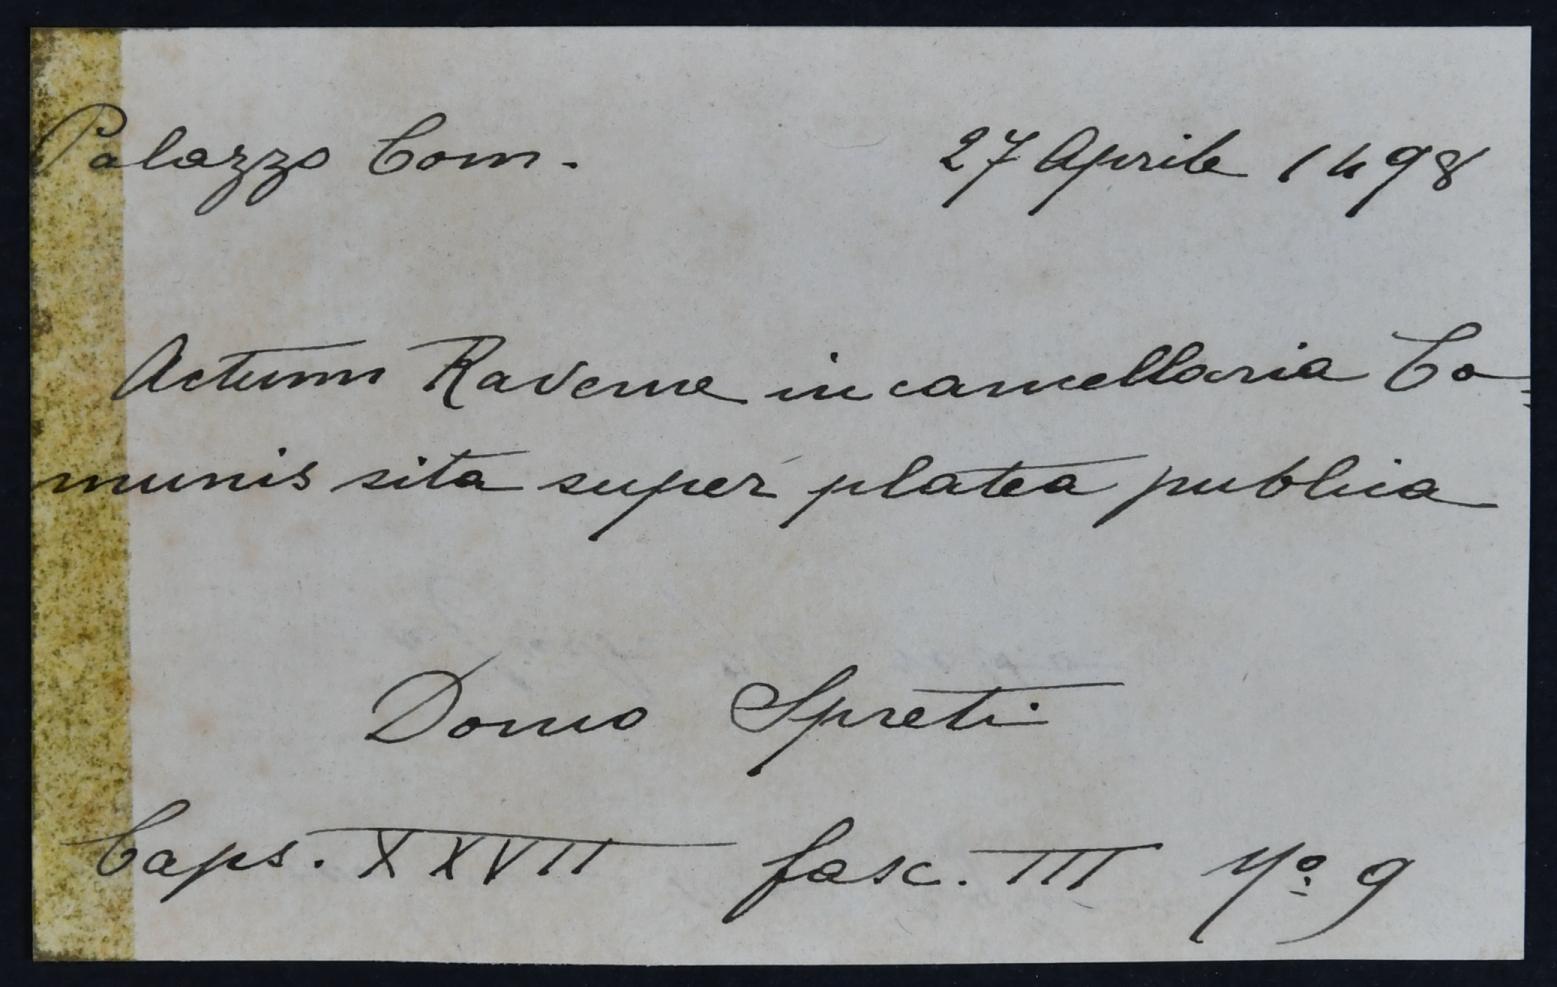 Palazzo Com. 27 Aprile 1498
Actum Ravenne in cancellaria Co=
munis sita super platea publica
Dono Spreti
Caps. XXVII fasc. III Nº 9